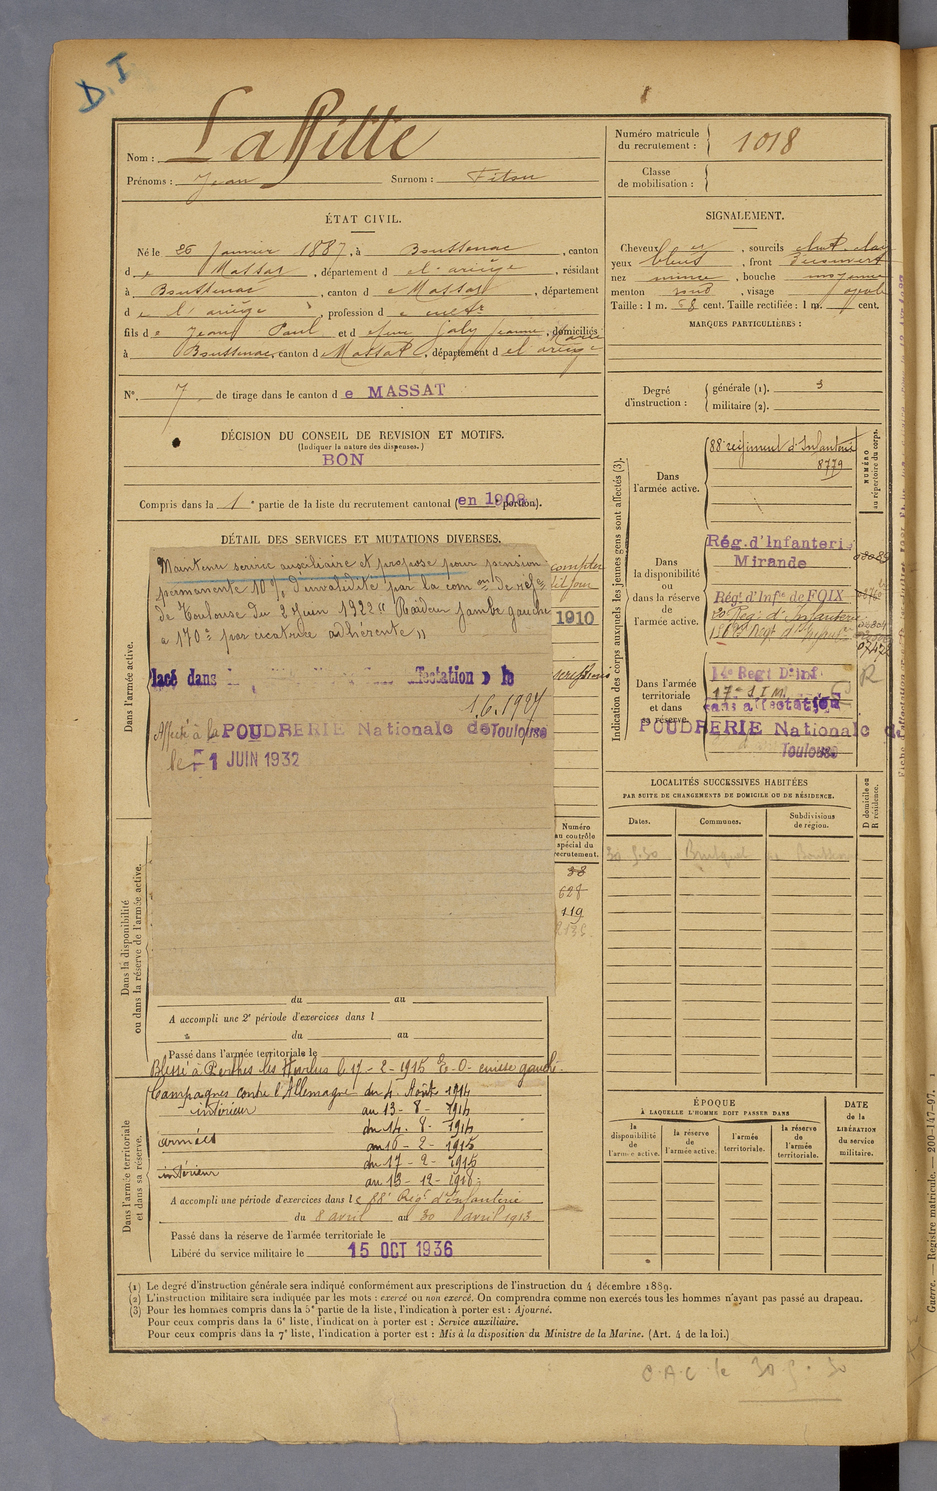 D.I
Nom : Laffitte
Prénoms : Jean Surnom :
Numéro matricule
du recrutement : 1018
Classe
de mobilisation :
ÉTAT CIVIL.
Né le 26 Janvier 1887, à Boussenac, canton
de Massat, département de l'ariège, résidant
à Boussenac, canton de Massat, département
de l'ariège, profession de
fils de Jean Paul et de feue Galy Jeanne Marie, domiciliés
à Boussenac, canton de Massat, département de l'ariège
N° 7 de tirage dans le canton de MASSAT
DÉCISION DU CONSEIL DE REVISION ET MOTIFS.
(Indiquer la nature des dispenses.)
BON
Compris dans la 1e partie de la liste du recrutement cantonal (en 1908 portion).
SIGNALEMENT.
Cheveux, sourcils
yeux bleus, front découvert
nez mince, bouche moyenne
menton rond, visage ovale
Taille : 1 m. 58 cent. Taille rectifiée : 1 m. cent.
MARQUES PARTICULIÈRES :
Degré
d'instruction :
générale (1). 3
militaire (2).
DÉTAIL DES SERVICES ET MUTATIONS DIVERSES.
Dans l'armée active.
Maintenu service auxiliaire et proposé pour pension
permanente 10 % d'invalidité par la com on de réf.
de Toulouse du 2 Juin 1922 "Raideur jambe gauche
a 170° par cicatrice adhérente"
compter
dit jour
1910
lacé dans affectation
1.6.1927
Affecté à la POUDRERIE Nationale de Toulouse
le 1 JUIN 1932
Indication des corps auxquels les jeunes gens sont affectés (3).
NUMÉRO
au répertoire du corps.
Dans
l'armée active.
88e régiment d'Infanterie
8779
Dans
la disponibilité
ou
dans la réserve
de l'armée active.
Rég. d'Infanterie
Mirande
Rég.t d'Inf.ie de FOIX
Dans l'armée
territoriale
et dans
sa réserve.
14e Regt D'Inf
17e S I M
sans affectation
R
POUDRERIE Nationale de
Toulouse
LOCALITÉS SUCCESSIVES HABITÉES
PAR SUITE DE CHANGEMENTS DE DOMICILE OU DE RÉSIDENCE.
Dates.
Communes.
Subdivisions
de région.
D domicile ou
R résidence.
30.5.30
Dans la disponibilité
ou dans la réserve de l'armée active.
Numéro
au contrôle
spécial du
recrutement.
38
628
119
du au
A accompli une 2e période d'exercices dans l
du au
Passé dans l'armée territoriale le
Blessé à Perthes les Hurlus le 17-2-1915 E.O. cuisse gauche.
Dans l'armée territoriale
et dans sa réserve.
Campagnes contre l'Allemagne du 4 Août 1914
intérieur au 13-8-1914
du 14-8-1914
armées au 16-2-1915
du 17-2-1915
intérieur au 13-12-1918
A accompli une période d'exercices dans le 88e Rég.t d'Infanterie
du 8 avril au 30 avril 1913
Passé dans la réserve de l'armée territoriale le
Libéré du service militaire le 15 OCT 1936
ÉPOQUE
À LAQUELLE L'HOMME DOIT PASSER DANS
la
disponibilité
de
l'armée active.
la réserve
de
l'armée active.
l'armée
territoriale.
la réserve
de
l'armée
territoriale.
DATE
de la
LIBÉRATION
du service
militaire.
(1) Le degré d'instruction générale sera indiqué conformément aux prescriptions de l'instruction du 4 décembre 1889.
(2) L'instruction militaire sera indiquée par les mots : exercé ou non exercé. On comprendra comme non exercés tous les hommes n'ayant pas passé au drapeau.
(3) Pour les hommes compris dans la 5e partie de la liste, l'indication à porter est : Ajourné.
Pour ceux compris dans la 6e liste, l'indication à porter est : Service auxiliaire.
Pour ceux compris dans la 7e liste, l'indication à porter est : Mis à la disposition du Ministre de la Marine. (Art. 4 de la loi.)
O.A.C. le 30.5.30
Guerre. — Registre matricule. — 200-147-97.